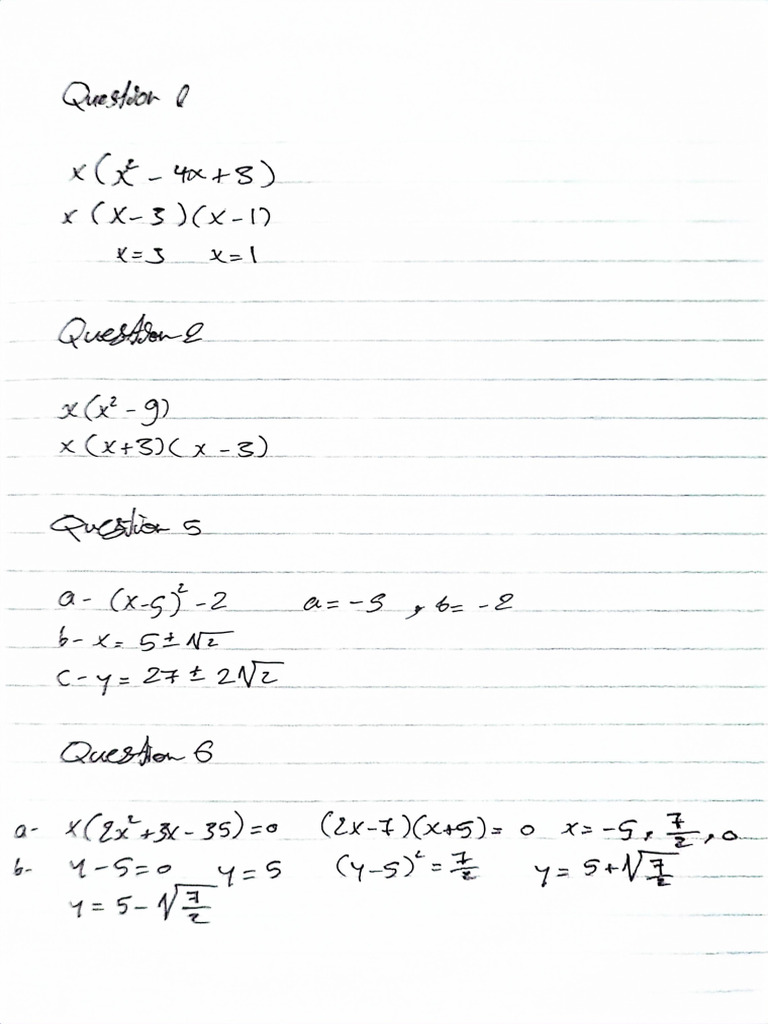 Question 1
x(x² - 4x + 3)
x(x-3)(x-1)
x=3 x=1
Question 2
x(x² - 9)
x(x+3)(x-3)
Question 5
a- (x-5)² - 2 a = -5, b = -2
b- x = 5 ± √2
c- y = 27 ± 2√2
Question 6
a- x(2x² + 3x - 35) = 0 (2x-7)(x+5) = 0 x = -5, 7/2, 0
b- y - 5 = 0 y = 5 (y-5)² = 7/2 y = 5 + √7/2
y = 5 - √7/2